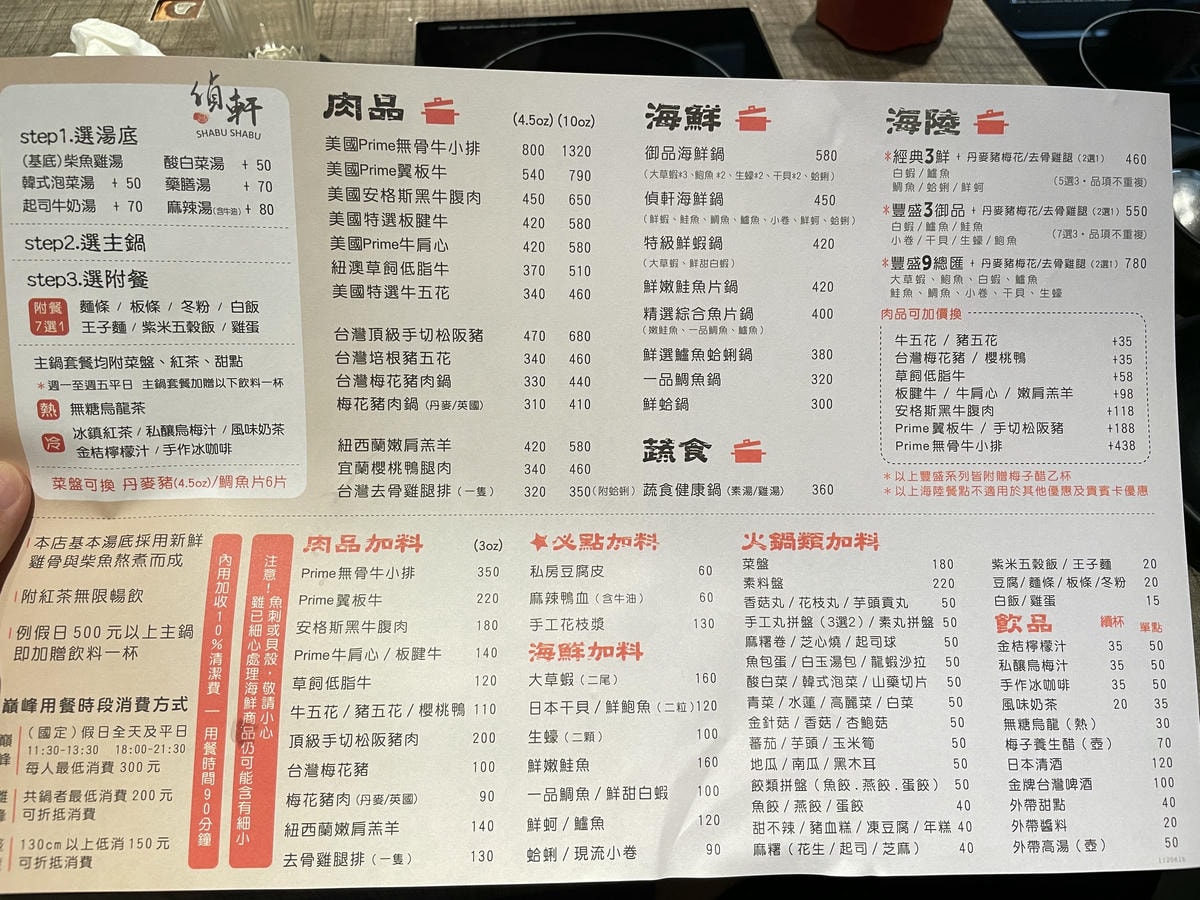 偵軒
SHABU SHABU
step1.選湯底
(基底)柴魚雞湯 酸白菜湯 + 50
韓式泡菜湯 + 50 藥膳湯 + 70
起司牛奶湯 + 70 麻辣湯(含牛油) + 80
step2.選主鍋
step3.選附餐
附餐7選1
麵條 / 板條 / 冬粉 / 白飯
王子麵 / 紫米五穀飯 / 雞蛋
主鍋套餐均附菜盤、紅茶、甜點
*週一至週五平日 主鍋套餐加贈以下飲料一杯
熱 無糖烏龍茶
冷 冰鎮紅茶 / 私釀烏梅汁 / 風味奶茶
金桔檸檬汁 / 手作冰咖啡
菜盤可換 丹麥豬(4.5oz)/鯛魚片6片
肉品 (4.5oz) (10oz)
美國Prime無骨牛小排 800 1320
美國Prime翼板牛 540 790
美國安格斯黑牛腹肉 450 650
美國特選板腱牛 420 580
美國Prime牛肩心 420 580
紐澳草飼低脂牛 370 510
美國特選牛五花 340 460
台灣頂級手切松阪豬 470 680
台灣培根豬五花 340 460
台灣梅花豬肉鍋 330 440
梅花豬肉鍋 (丹麥/英國) 310 410
紐西蘭嫩肩羔羊 420 580
宜蘭櫻桃鴨腿肉 340 460
台灣去骨雞腿排 (一隻) 320 350(附蛤蜊)
海鮮
御品海鮮鍋 580
(大草蝦*3、鮑魚*2、生蠔*2、干貝*2、蛤蜊)
偵軒海鮮鍋 450
(鮮蝦、鮭魚、鯛魚、鱸魚、小卷、鮮蚵、蛤蜊)
特級鮮蝦鍋 420
(大草蝦、鮮甜白蝦)
鮮嫩鮭魚片鍋 420
精選綜合魚片鍋 400
(嫩鮭魚、一品鯛魚、鱸魚)
鮮選鱸魚蛤蜊鍋 380
一品鯛魚鍋 320
鮮蛤鍋 300
蔬食
蔬食健康鍋 (素湯/雞湯) 360
海陵
*經典3鮮 + 丹麥豬梅花/去骨雞腿 (2選1) 460
白蝦 / 鱸魚
鯛魚 / 蛤蜊 / 鮮蚵 (5選3・品項不重複)
*豐盛3御品 + 丹麥豬梅花/去骨雞腿 (2選1) 550
白蝦 / 鱸魚 / 鮭魚
小卷 / 干貝 / 生蠔 / 鮑魚 (7選3・品項不重複)
*豐盛9總匯 + 丹麥豬梅花/去骨雞腿 (2選1) 780
大草蝦、鮑魚、白蝦、鱸魚
鮭魚、鯛魚、小卷、干貝、生蠔
肉品可加價換
牛五花 / 豬五花 +35
台灣梅花豬 / 櫻桃鴨 +35
草飼低脂牛 +58
板腱牛 / 牛肩心 / 嫩肩羔羊 +98
安格斯黑牛腹肉 +118
Prime翼板牛 / 手切松阪豬 +188
Prime無骨牛小排 +438
*以上豐盛系列皆附贈梅子醋乙杯
*以上海陵餐點不適用於其他優惠及貴賓卡優惠
本店基本湯底採用新鮮
雞骨與柴魚熬煮而成
附紅茶無限暢飲
例假日 500 元以上主鍋
即加贈飲料一杯
巔峰用餐時段消費方式
(國定)假日全天及平日
11:30-13:30 18:00-21:30
每人最低消費 300 元
共鍋者最低消費 200 元
可折抵消費
130cm 以上低消 150 元
可折抵消費
內用加收10%清潔費 — 用餐時間90分鐘
注意！魚刺或貝殼，敬請小心
雖已細心處理海鮮商品仍可能含有細小
肉品加料 (3oz)
Prime無骨牛小排 350
Prime翼板牛 220
安格斯黑牛腹肉 180
Prime牛肩心 / 板腱牛 140
草飼低脂牛 120
牛五花 / 豬五花 / 櫻桃鴨 110
頂級手切松阪豬肉 200
台灣梅花豬 100
梅花豬肉 (丹麥/英國) 90
紐西蘭嫩肩羔羊 140
去骨雞腿排 (一隻) 130
★必點加料
私房豆腐皮 60
麻辣鴨血 (含牛油) 60
手工花枝漿 130
海鮮加料
大草蝦 (二尾) 160
日本干貝 / 鮮鮑魚 (二粒) 120
生蠔 (二顆) 100
鮮嫩鮭魚 160
一品鯛魚 / 鮮甜白蝦 100
鮮蚵 / 鱸魚 120
蛤蜊 / 現流小卷 90
火鍋類加料
菜盤 180
素料盤 220
香菇丸 / 花枝丸 / 芋頭貢丸 50
手工丸拼盤 (3選2) / 素丸拼盤 50
麻糬卷 / 芝心燒 / 起司球 50
魚包蛋 / 白玉湯包 / 龍蝦沙拉 50
酸白菜 / 韓式泡菜 / 山藥切片 50
青菜 / 水蓮 / 高麗菜 / 白菜 50
金針菇 / 香菇 / 杏鮑菇 50
蕃茄 / 芋頭 / 玉米筍 50
地瓜 / 南瓜 / 黑木耳 50
餃類拼盤 (魚餃.燕餃.蛋餃) 50
魚餃 / 燕餃 / 蛋餃 40
甜不辣 / 豬血糕 / 凍豆腐 / 年糕 40
麻糬 (花生 / 起司 / 芝麻) 40
紫米五穀飯 / 王子麵 20
豆腐 / 麵條 / 板條 / 冬粉 20
白飯 / 雞蛋 15
飲品 續杯 單點
金桔檸檬汁 35 50
私釀烏梅汁 35 50
手作冰咖啡 35 50
風味奶茶 20 35
無糖烏龍 (熱) 30
梅子養生醋 (壺) 70
日本清酒 120
金牌台灣啤酒 100
外帶甜點 40
外帶醬料 20
外帶高湯 (壺) 50